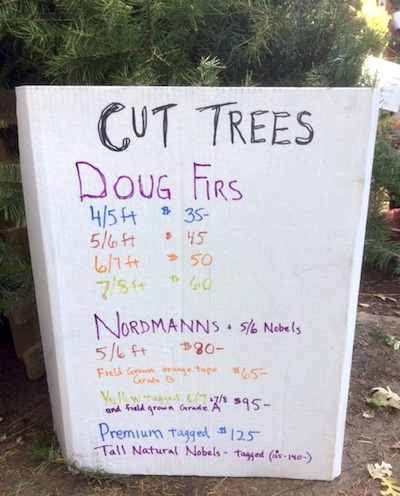 CUT TREES
DOUG FIRS
4/5 ft $ 35-
5/6 ft $ 45
6/7 ft $ 50
7/8 ft $ 60
NORDMANNS + 5/6 Nobels
5/6 ft $80-
Field Grown orange tape $65-
Grade B
Yellow tagged 6/7 + 7/8 $95-
and field grown Grade A
Premium tagged $125
Tall Natural Nobels - tagged (115-140-)